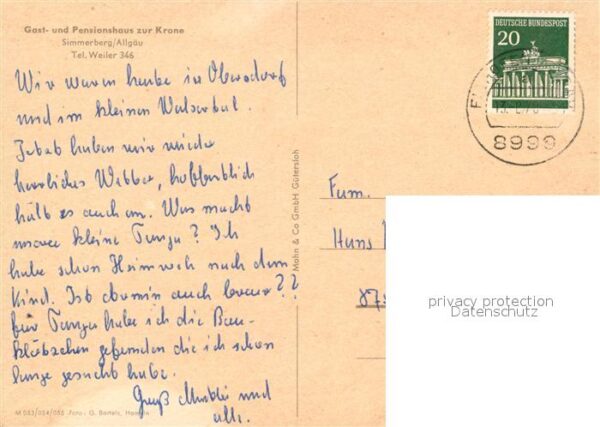 Gast- und Pensionshaus zur Krone
Simmerberg/Allgäu
Tel. Weiler 346
Wir waren heute in Oberstdorf
und im kleinen Walsertal.
haben wir wieder
herrliches Wetter, hoffentlich
hält es auch an. Was macht
unsere kleine Tanja? Ich
habe schon Heimweh nach dem
Kind. Ist auch brav??
für Tanja habe ich die Bau-
klötzchen gefunden die ich schon
lange gesucht habe.
Gruß und
alle.
M 053/054/055 Foto: G. Bartels,
Mohn & Co GmbH Gütersloh
DEUTSCHE BUNDESPOST
20
8999
Fam.
Hans
875
privacy protection
Datenschutz